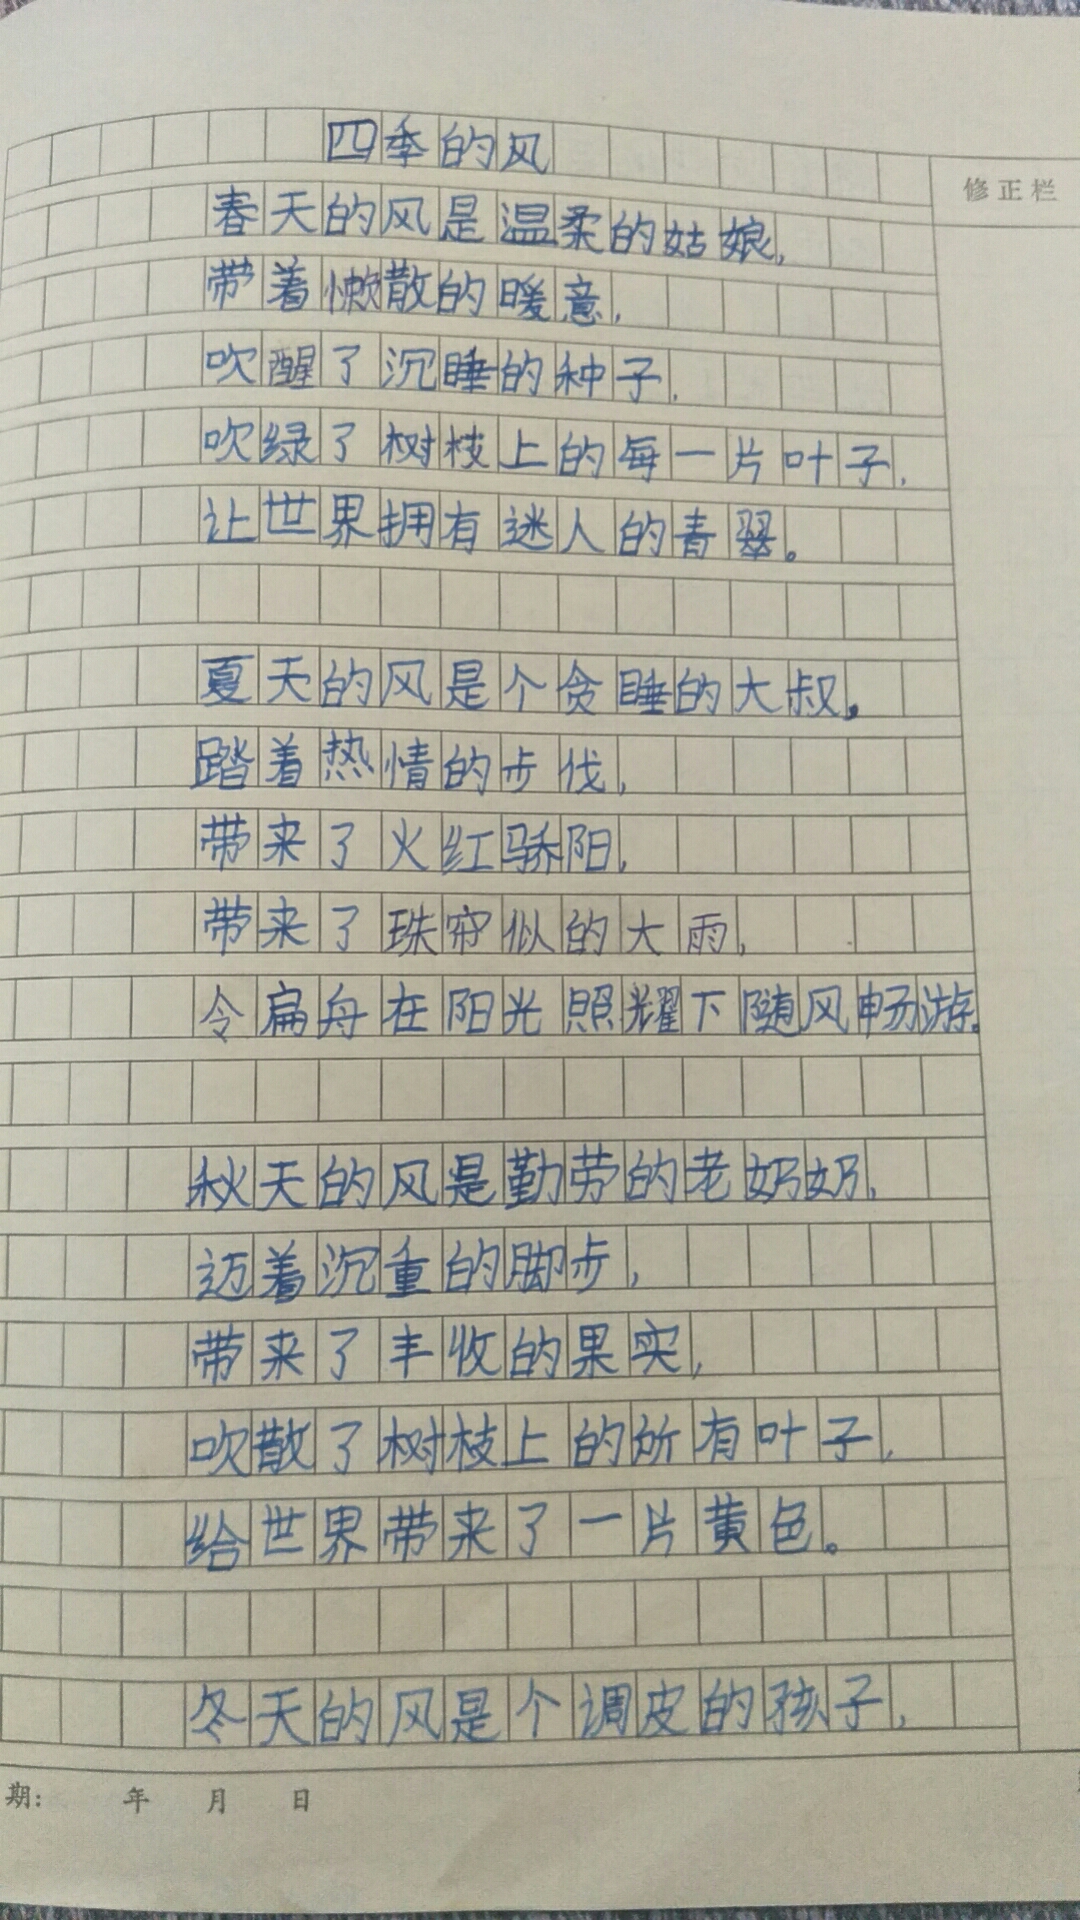 四季的风
修正栏
春天的风是温柔的姑娘,
带着懒散的暖意,
吹醒了沉睡的种子,
吹绿了树枝上的每一片叶子,
让世界拥有迷人的青翠。
夏天的风是个贪睡的大叔,
踏着热情的步伐,
带来了火红骄阳,
带来了珠帘似的大雨,
令扁舟在阳光照耀下随风畅游。
秋天的风是勤劳的老奶奶,
迈着沉重的脚步,
带来了丰收的果实,
吹散了树枝上的所有叶子,
给世界带来了一片黄色。
冬天的风是个调皮的孩子,
期: 年 月 日